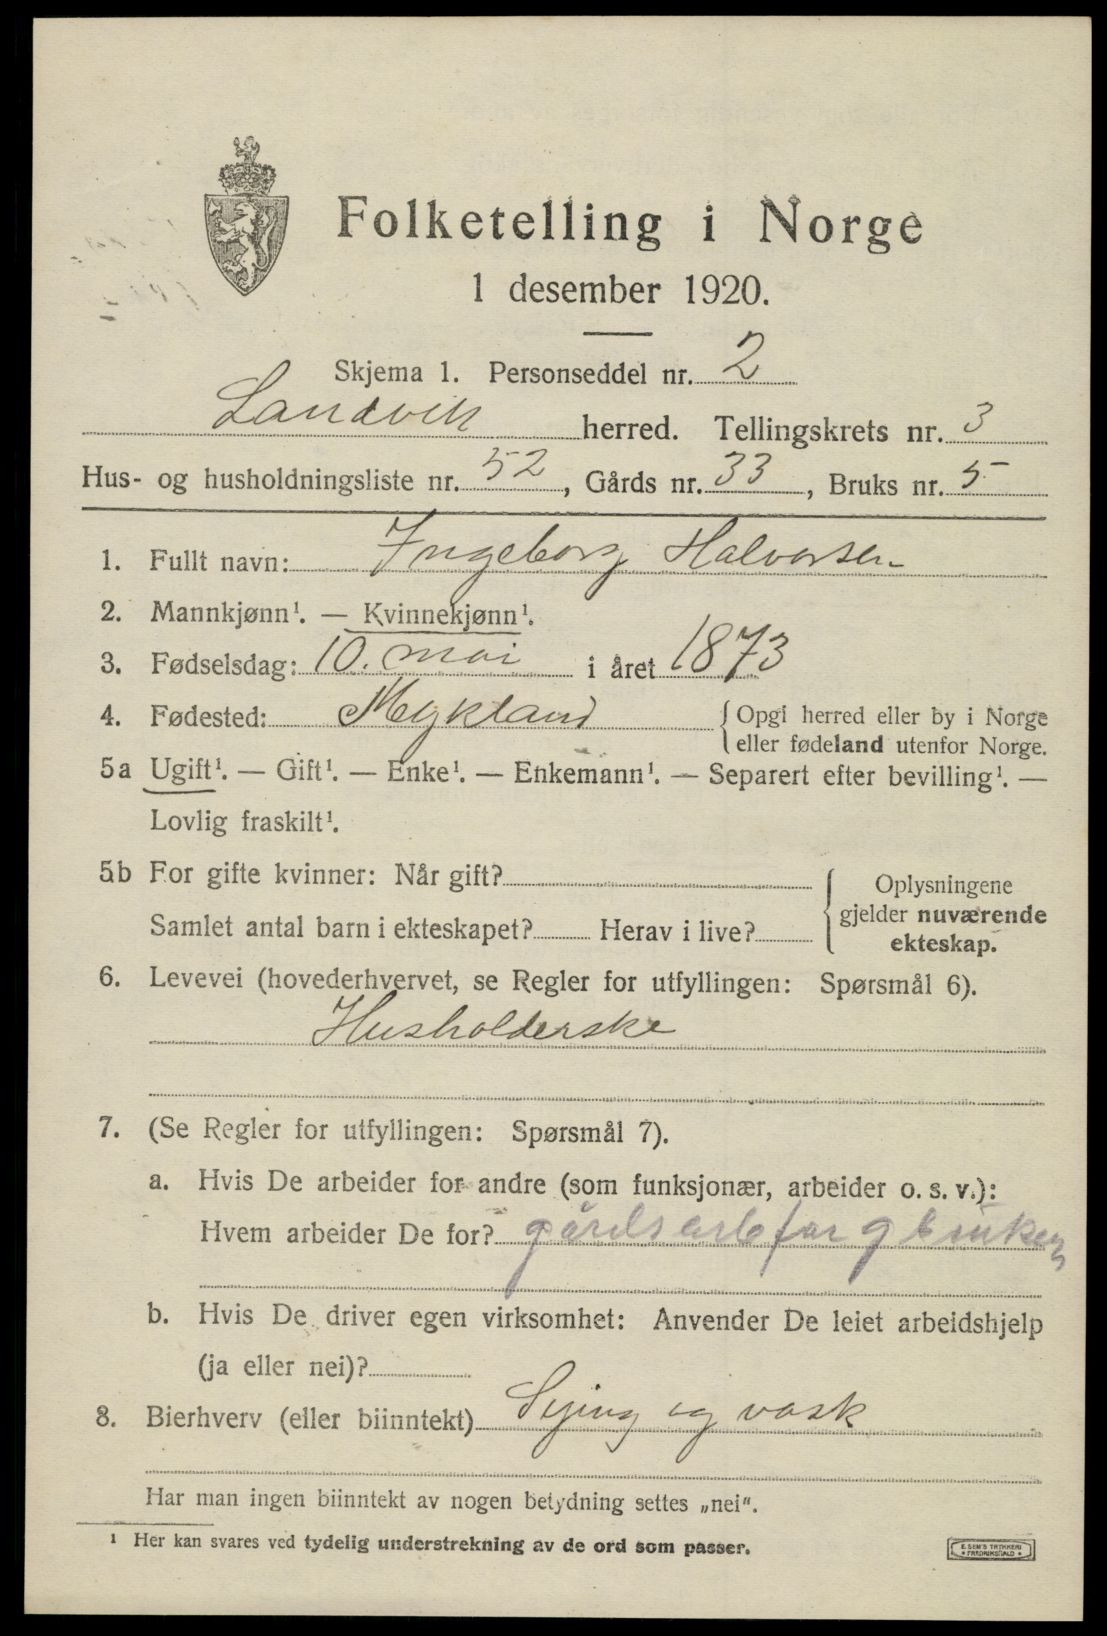 Folketelling i Norge
1 desember 1920.
Skjema 1. Personseddel nr. 2
Landvik herred. Tellingskrets nr. 3
Hus- og husholdningsliste nr. 52, Gårds nr. 33, Bruks nr. 5
1. Fullt navn: Ingeborg Halvorsen
2. Mannkjønn¹. — Kvinnekjønn¹.
3. Fødselsdag: 10. mai i året 1873
4. Fødested: Mykland {Opgi herred eller by i Norge
eller fødeland utenfor Norge.
5a Ugift¹. — Gift¹. — Enke¹. — Enkemann¹. — Separert efter bevilling¹. —
Lovlig fraskilt¹.
5b For gifte kvinner: Når gift?
Samlet antal barn i ekteskapet? Herav i live?
Oplysningene
gjelder nuværende
ekteskap.
6. Levevei (hovederhvervet, se Regler for utfyllingen: Spørsmål 6).
Husholderske
7. (Se Regler for utfyllingen: Spørsmål 7).
a. Hvis De arbeider for andre (som funksjonær, arbeider o. s. v.):
Hvem arbeider De for? gårdsarb for
b. Hvis De driver egen virksomhet: Anvender De leiet arbeidshjelp
(ja eller nei)?
8. Bierhverv (eller biinntekt) Sying og vask
Har man ingen biinntekt av nogen betydning settes „nei".
¹ Her kan svares ved tydelig understrekning av de ord som passer.
E. SEM'S TRYKKERI
* FREDRIKSHALD *